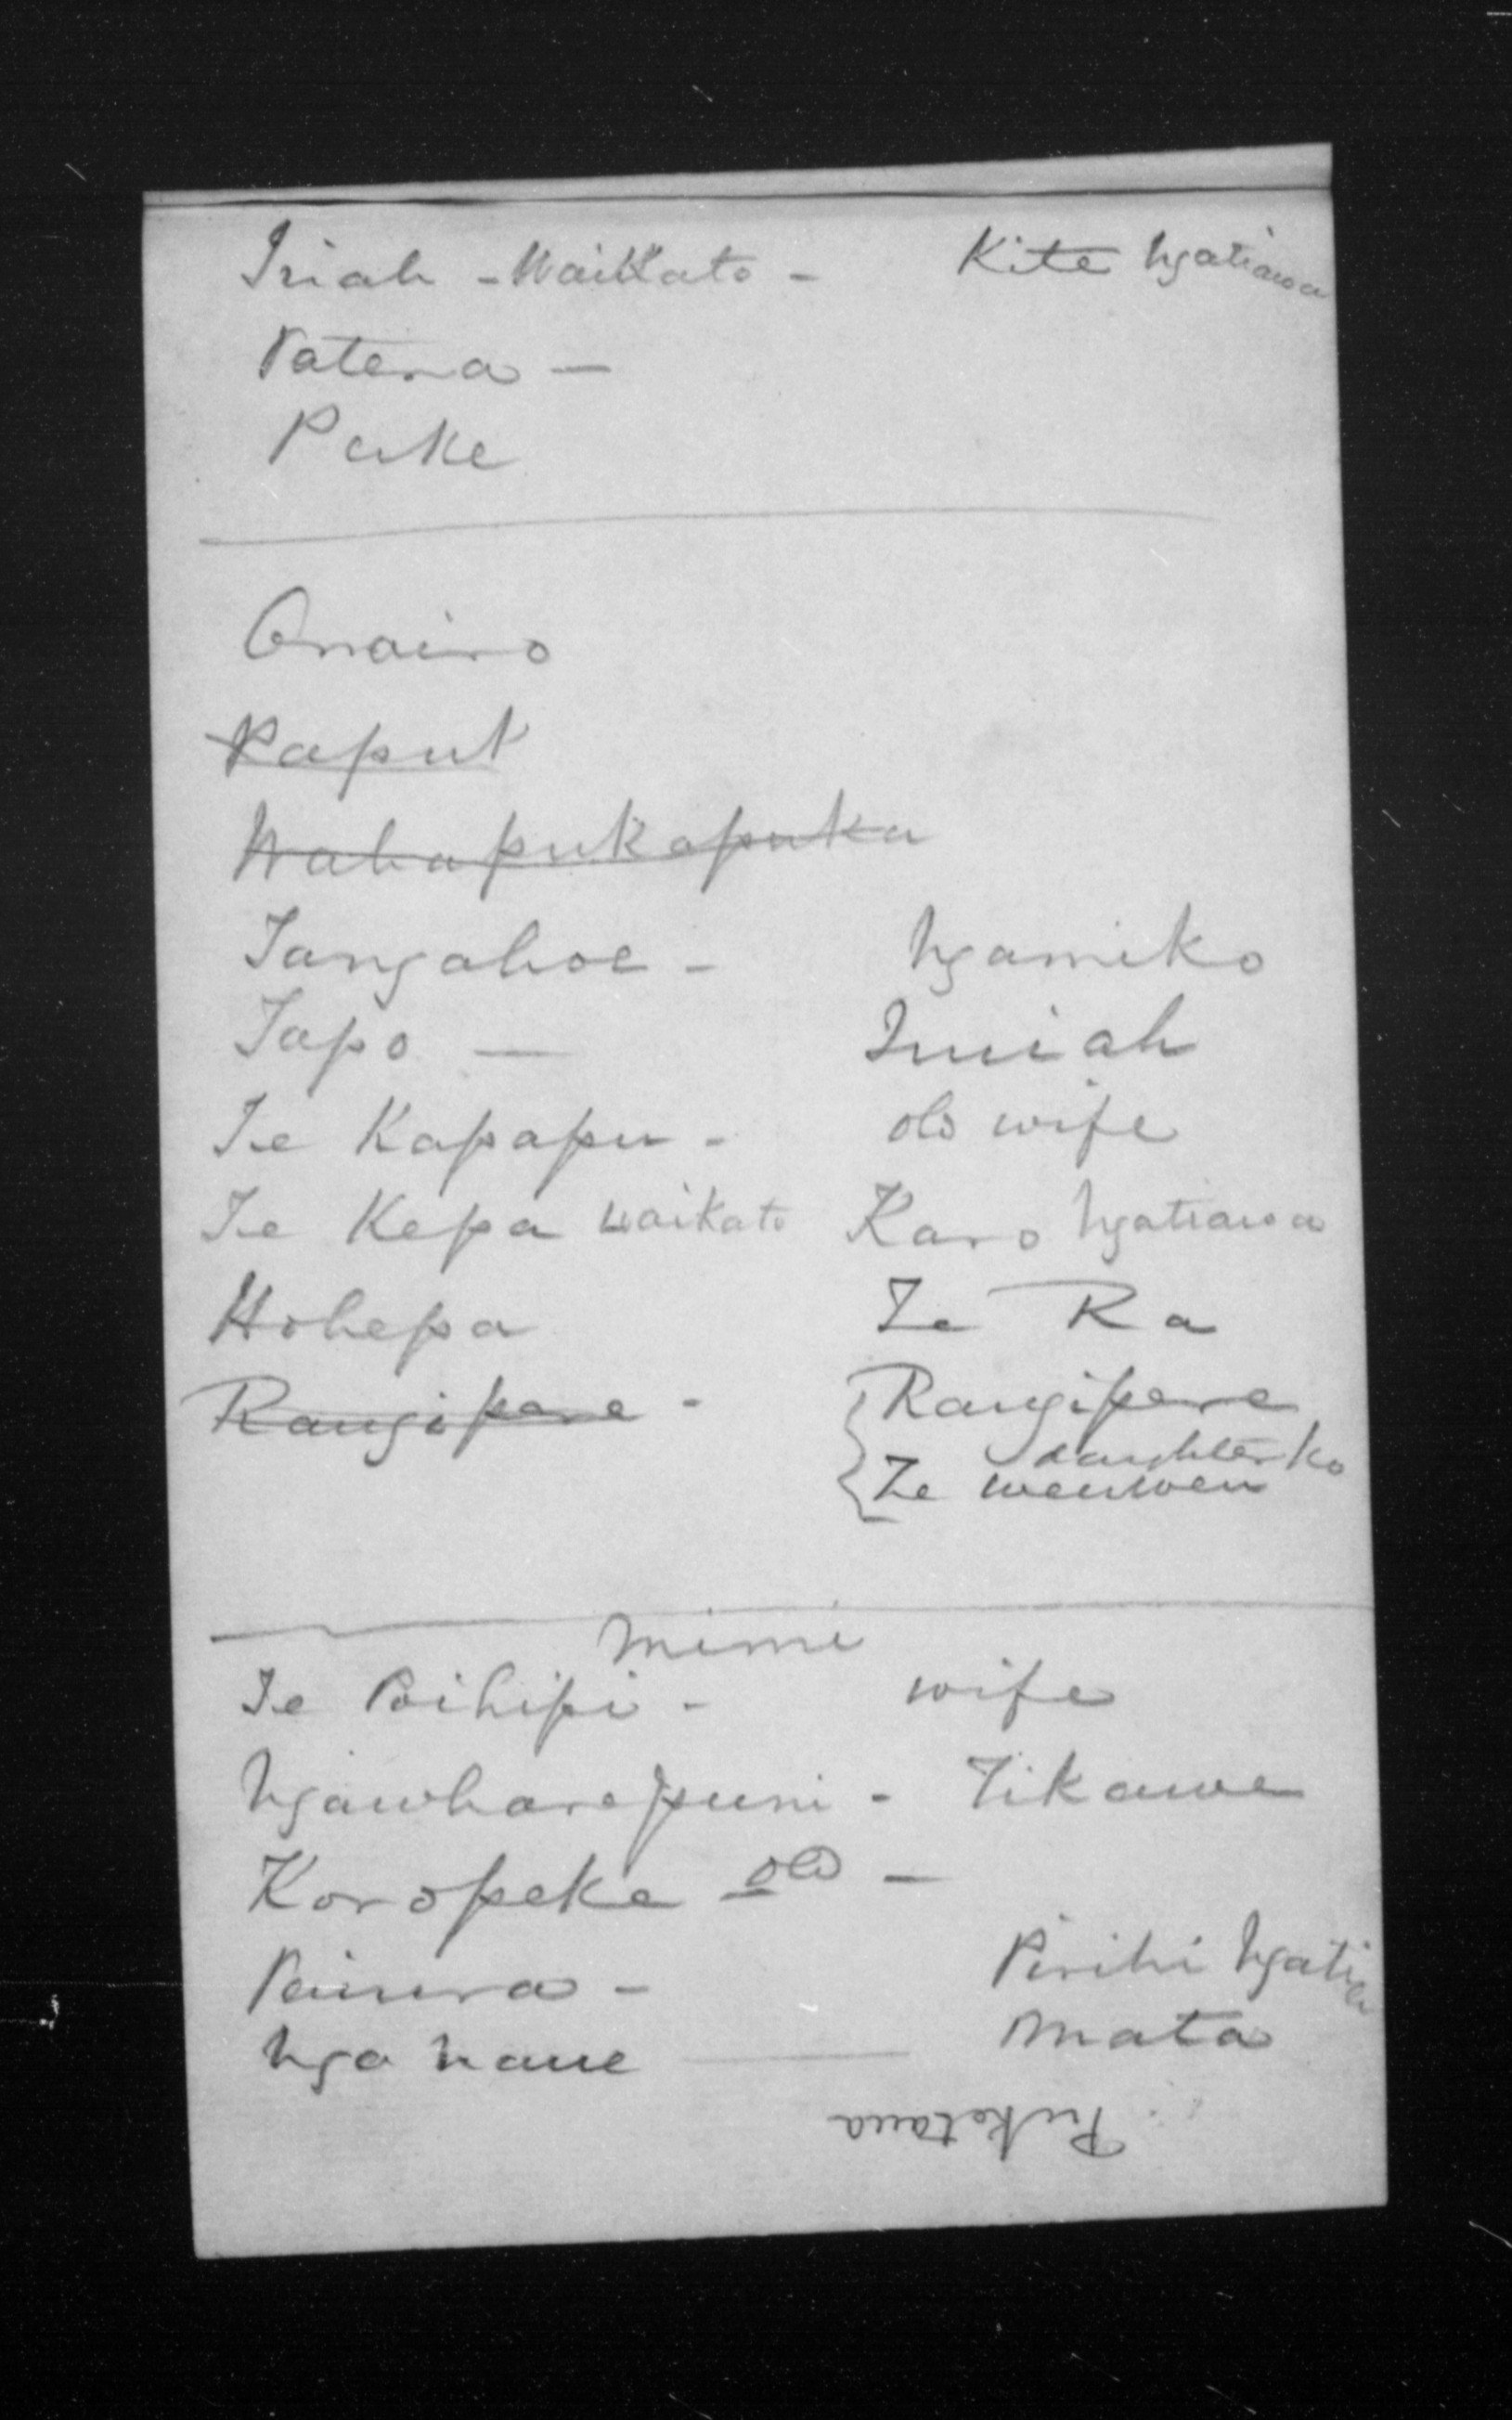 Iriah - Waikato - Kite Ngatiawa
Patena -
Puke
Onairo
Kaput
Wahapukapuka
Tangahoe - Ngamiko
Tapo - Imiah
Te Kapapu - old wife
Te Kepa Waikato Karo Ngatiawa
Hohepa Te Ra
Rangipere - Rangipere
daughter ko
Te weuweu
Mimi
Te Poihipi - wife
Ngawharepuni - Tikawe
Koropeke old -
Paiura - Pirihi Ngatia
Nga naue - Mata
Puketaua